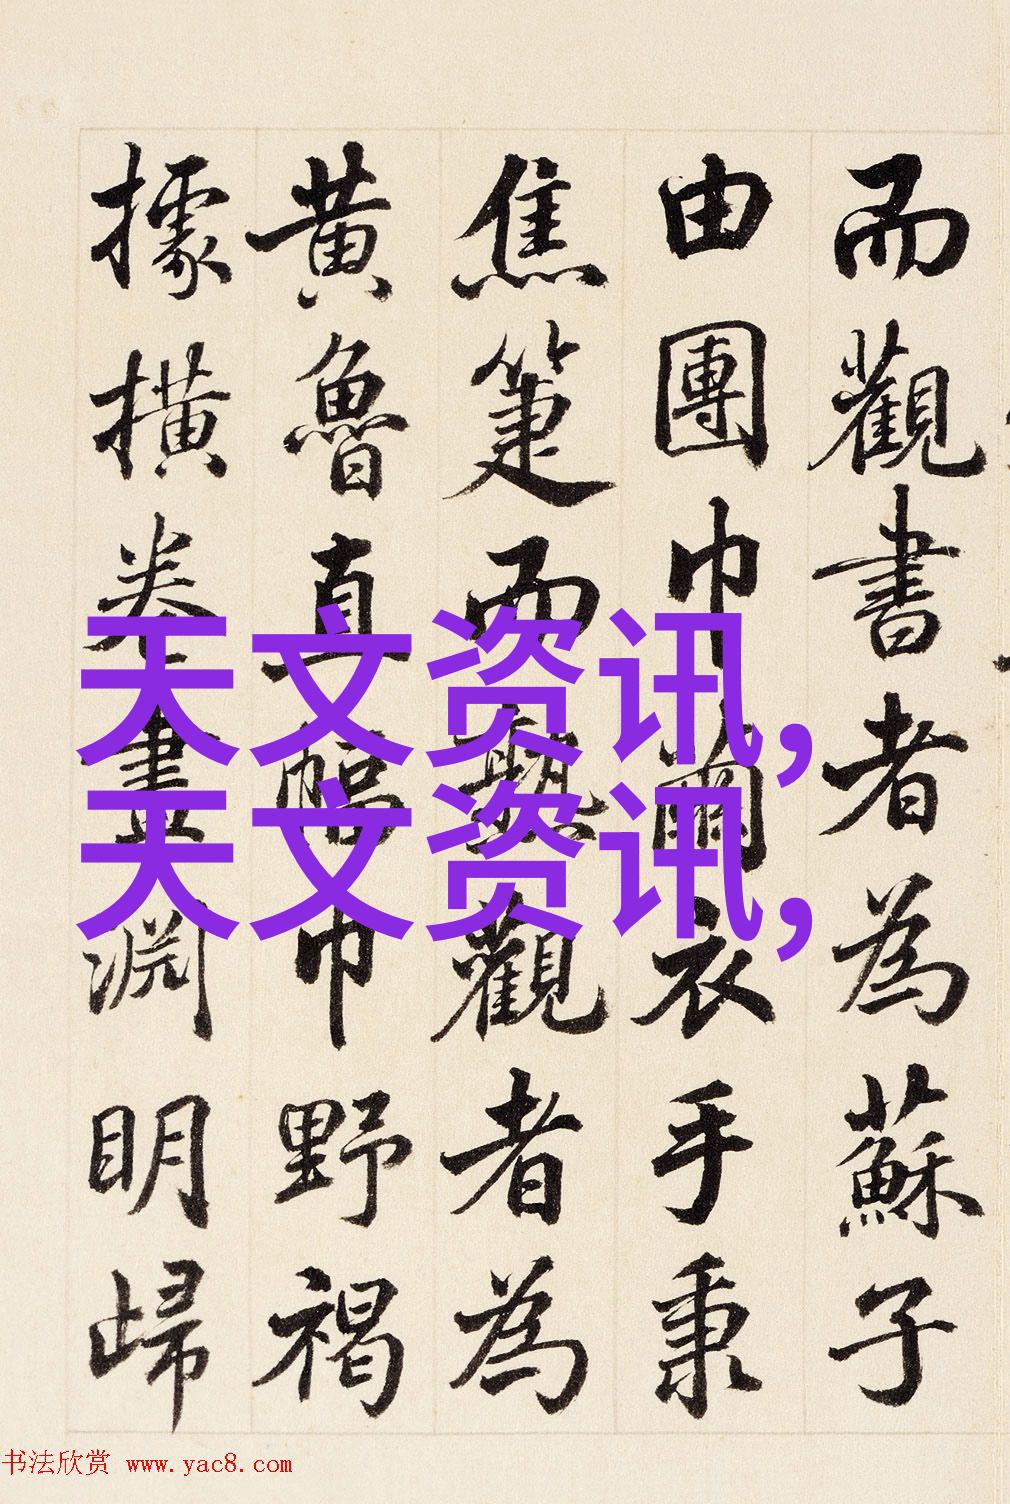 而觀書者為蘇子
由團巾繭衣手秉
焦箑而熟觀者為
黃魯直幅巾野褐
據撗卷畫淵明歸
天文资讯,
天文资讯,
书法欣赏 www.yac8.com